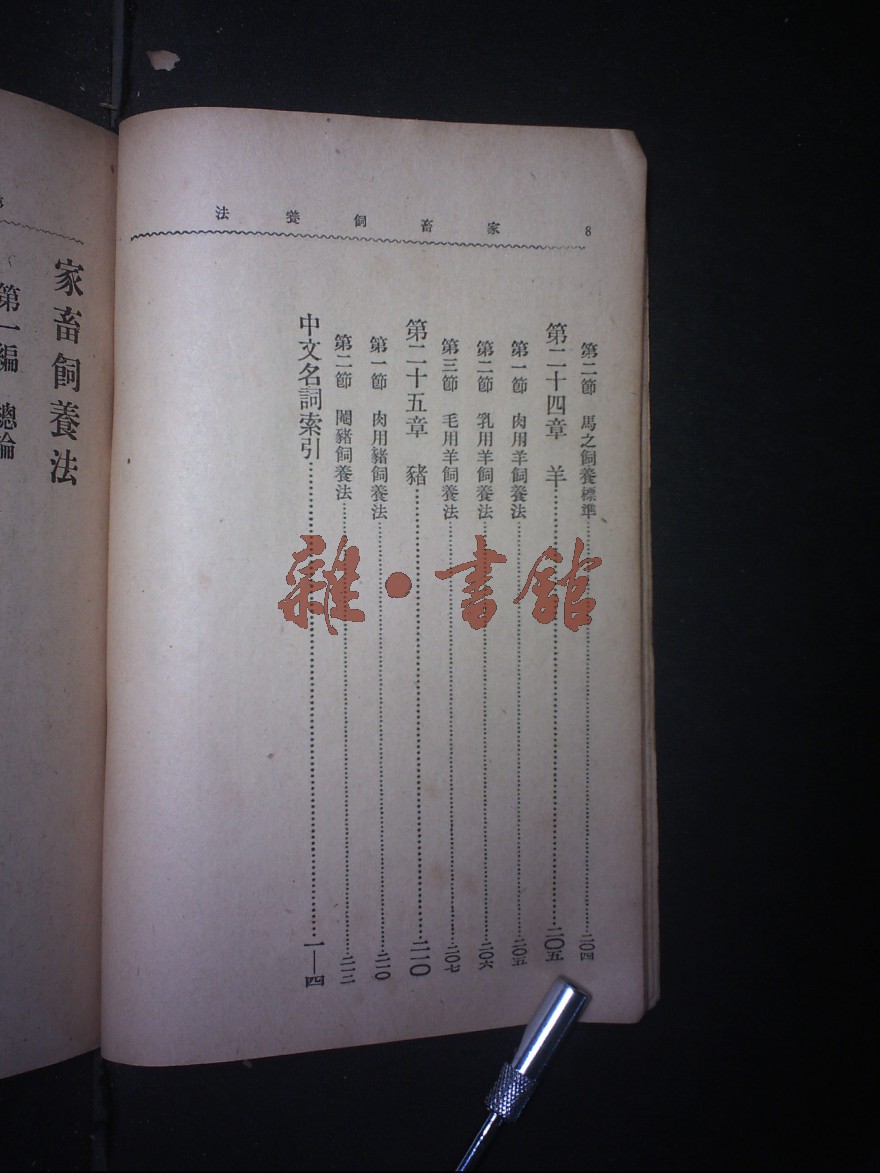 8 家畜飼養法
第二節 馬之飼養標準……二〇四
第二十四章 羊……二〇五
第一節 肉用羊飼養法……二〇五
第二節 乳用羊飼養法……二〇六
第三節 毛用羊飼養法……二〇七
第二十五章 豬……二一〇
第一節 肉用豬飼養法……二一〇
第二節 閹豬飼養法……二一二
中文名詞索引……一—四
家畜飼養法
第一編 總論
雜·書館